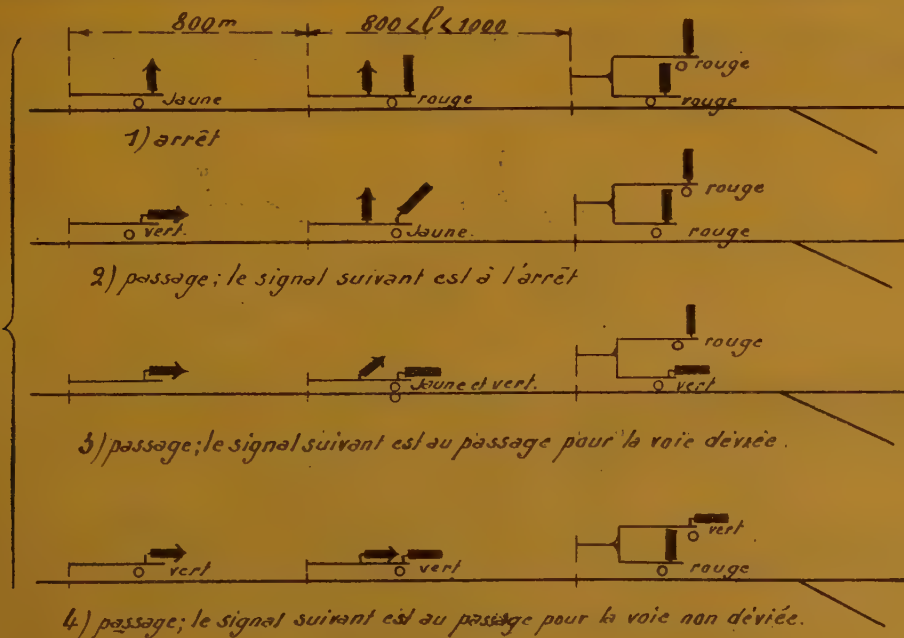 800m 800<l<1000
rouge
Jaune rouge rouge
1) arrêt
rouge
vert. Jaune. rouge
2) passage; le signal suivant est à l'arrêt
rouge
Jaune et vert. vert
3) passage; le signal suivant est au passage pour la voie déviée.
vert
vert vert rouge
4) passage; le signal suivant est au passage pour la voie non déviée.